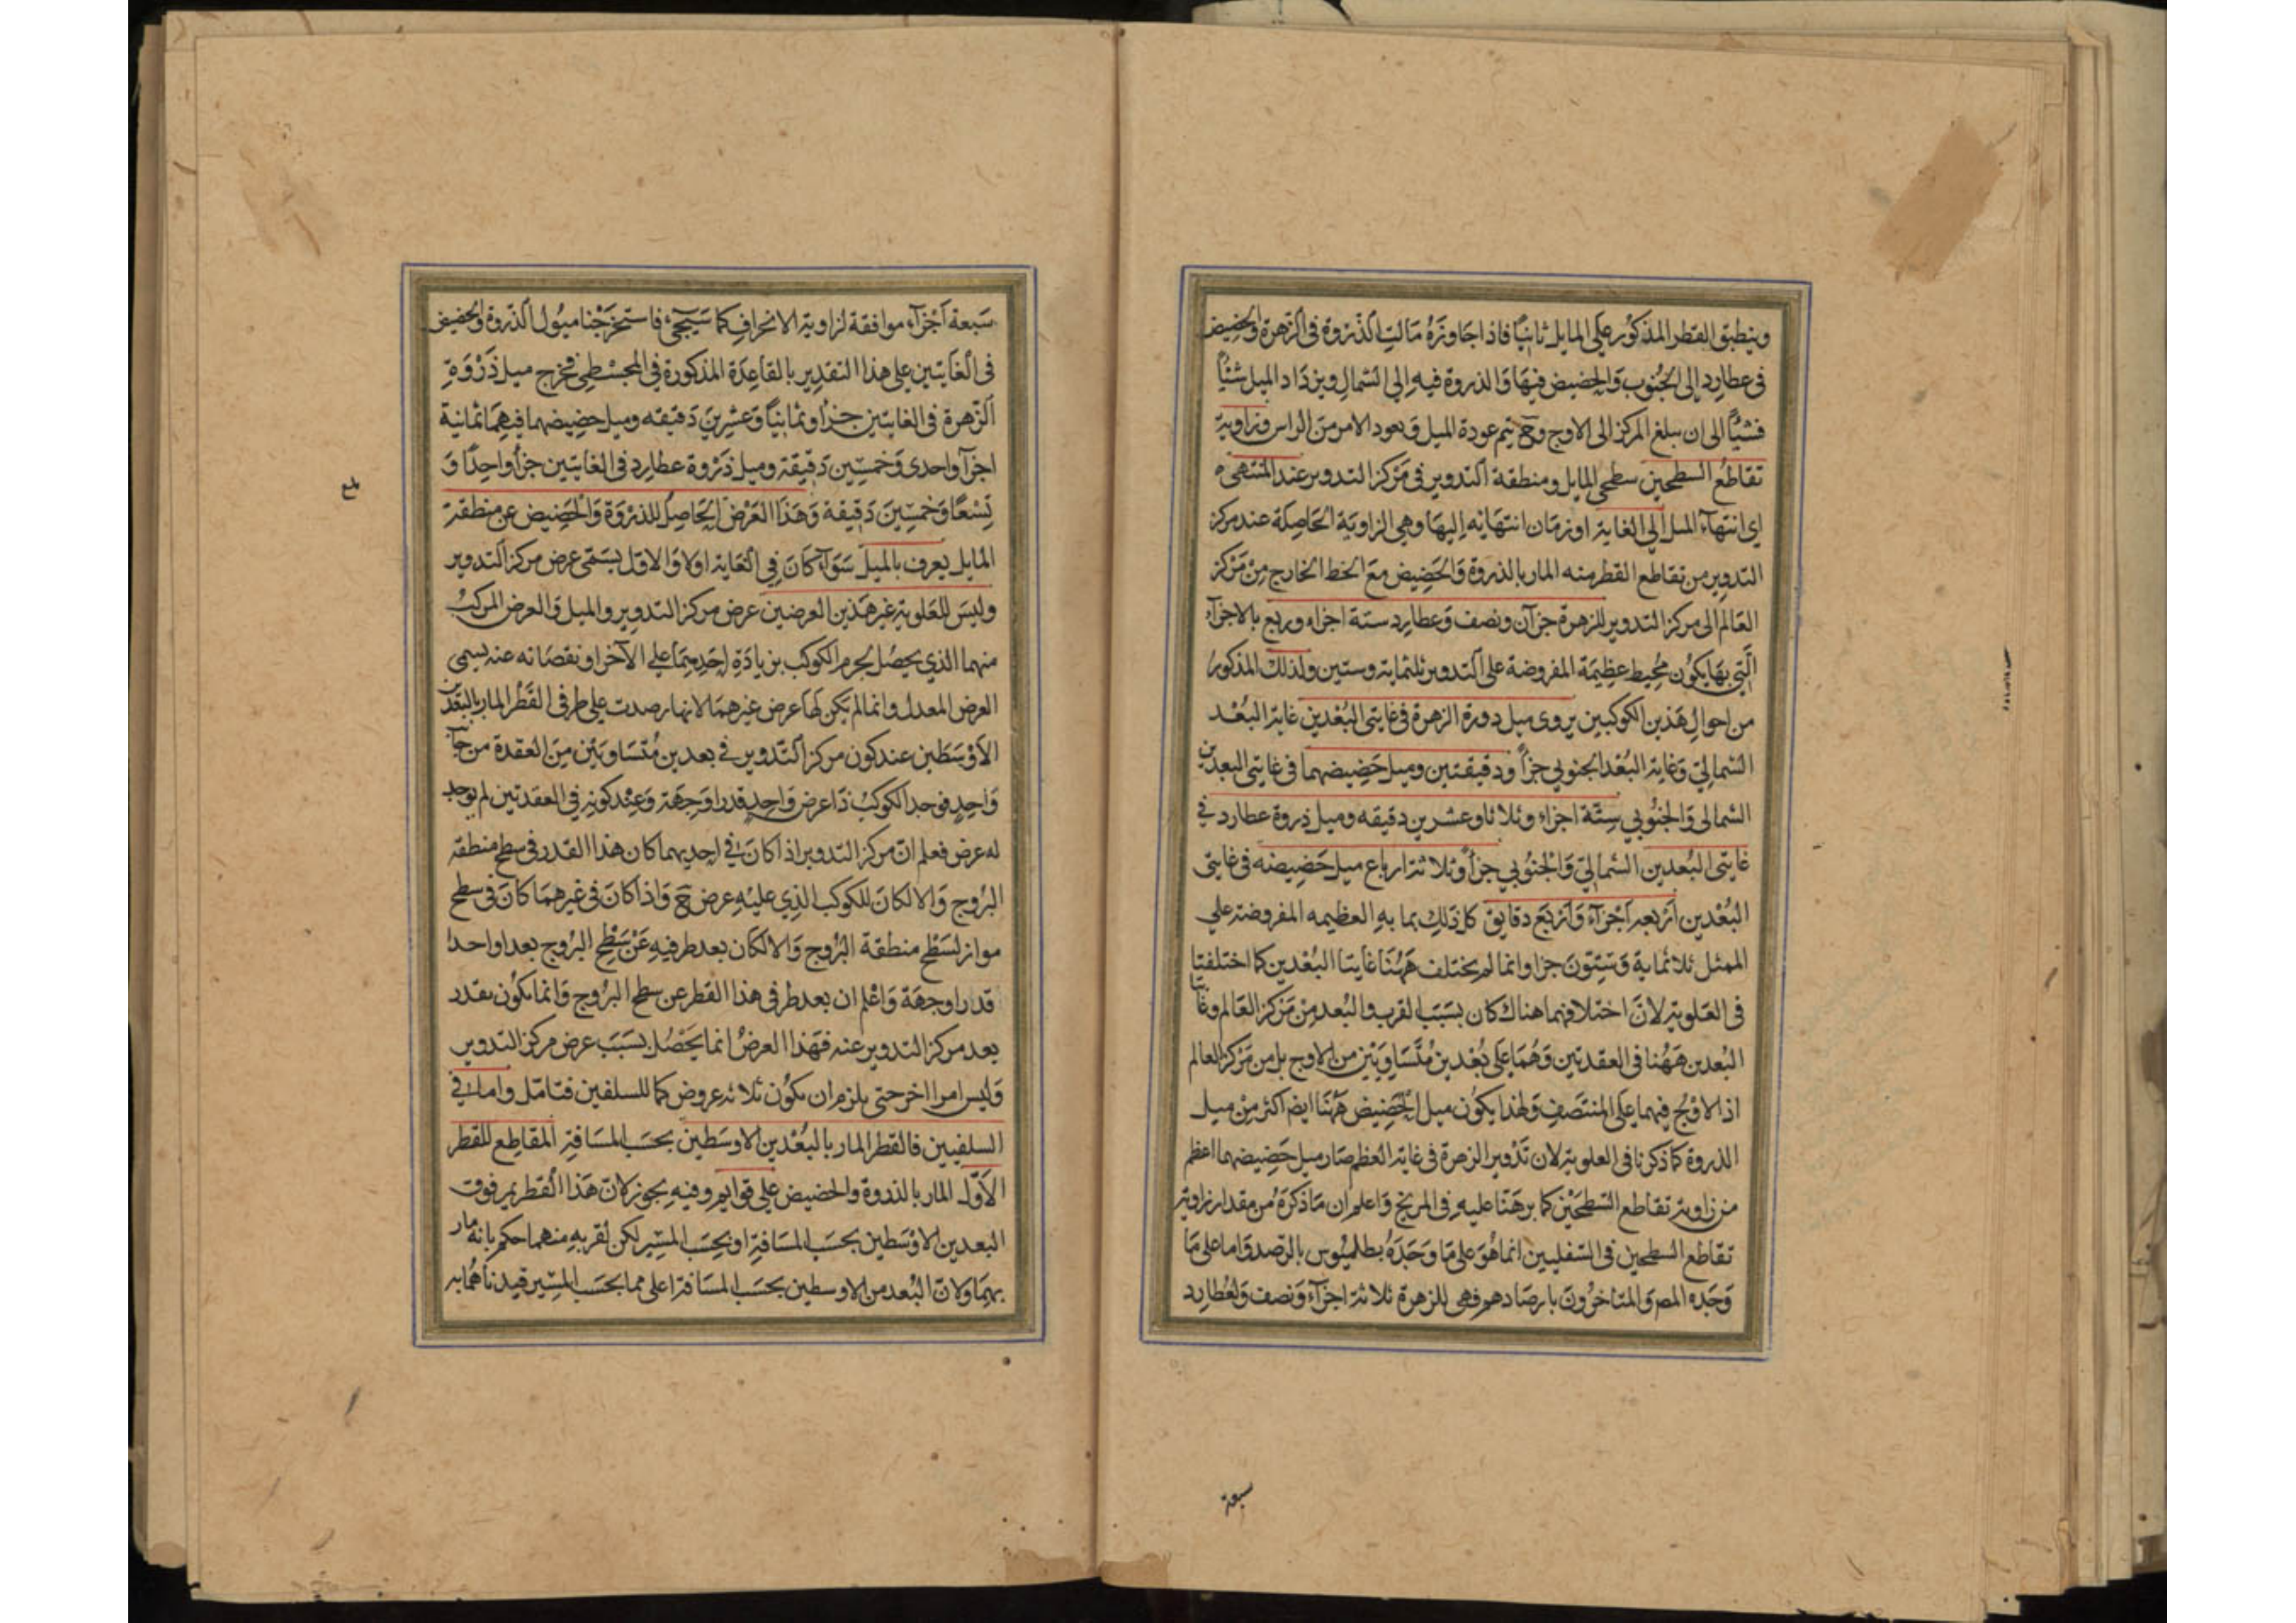 وينطبق القطر المذكور على المايل ثانيًا فاذا جاوزه مالت الذروة في الزهرة والحضيض
في عطارد الى الجنوب والحضيض فيها والذروة فيه الى الشمال ويزداد الميل شيئًا
فشيئًا الى ان يبلغ المركز الى الاوج وح يتم عودة الميل ويعود الامر من الراس وزاوية
تقاطع السطحين سطحي المايل ومنطقة التدوير في مركز التدوير عند المنتهى
اي انتهاء الميل الى الغاية او زمان انتهائه اليها وهي الزاوية الحاصلة عند مركز
التدوير من تقاطع القطر منه المار بالذروة والحضيض مع الخط الخارج من مركز
العالم الى مركز التدوير للزهرة جزآن ونصف وعطارد ستة اجزاء وربع بالاجزآء
التي بها يكون محيط عظيمة المفروضة على التدوير ثلثماية وستين ولذلك المذكور
من احوال هذين الكوكبين يروى ميل دورة الزهرة في غايتي البعدين غاية البعد
الشمالي وغاية البعد الجنوبي جزأ ودقيقتين وميل حضيضهما في غايتي البعدين
الشمالي والجنوبي ستة اجزاء وثلاثا وعشرين دقيقه وميل ذروة عطارد في
غايتي البعدين الشمالي والجنوبي جزأ وثلاثة ارباع ميل حضيضه في غايتي
البعدين اربعه اجزآء واربع دقايق كل ذلك بما به العظيمه المفروضة على
الممثل ثلاثماية وستون جزا وانما لم يختلف ههنا غايتا البعدين كما اختلفتا
في العلوية لان اختلافهما هناك كان بسبب القرب والبعد من مركز العالم وغايتا
البعدين ههنا في العقدتين وهما على بعدين متساويين من الاوج بل من مركز العالم
اذ الاوج فيهما على المنتصف ولهذا يكون ميل الحضيض ههنا ايضا اكثر من ميل
الذروة كما ذكرنا في العلوية لان تدوير الزهرة في غاية العظم صار ميل حضيضهما اعظم
من زاوية تقاطع السطحين كما برهنا عليه في المريخ واعلم ان ما ذكره من مقدار زاوية
تقاطع السطحين في السفليين انما هو على ما وجده بطلميوس بالرصد واما على ما
وجده المص والمتاخرون بارصادهم فهي للزهرة ثلاثة اجزآء ونصف ولعطارد
سبعة
سبعة اجزآء موافقة لزاوية الانحراف كما سيجيء فاستخرجنا ميول الذروة والحضيض
في الغايتين على هذا التقدير بالقاعدة المذكورة في المجسطي فخرج ميل ذروة
الزهرة في الغايتين جزأ وثمانيًا وعشرين دقيقه وميل حضيضهما فيهما ثمانية
اجزآ واحدى وخمسين دقيقة وميل ذروة عطارد في الغايتين جزأ واحدًا و
تسعًا وخمسين دقيقة وهذا العرض الحاصل للذروة والحضيض عن منطقة
المايل يعرف بالميل سوآء كان في الغاية اولا والاول يسمى عرض مركز التدوير
وليس للعلوية غير هذين العرضين عرض مركز التدوير والميل والعرض المركب
منهما الذي يحصل لجرم الكوكب بزيادة احديهما على الآخر او نقصانه عنه يسمى
العرض المعدل وانما لم يكن لها عرض غيرهما لانها رصدت على طرفي القطر المار بالبعدين
الاوسطين عند كون مركز التدوير في بعدين متساويين من العقدة من جانب
واحد فوجد الكوكب ذا عرض واحد قدرا وجهة وعند كونه في العقدتين لم يوجد
له عرض فعلم ان مركز التدوير اذا كان في احديهما كان هذا القدر في سطح منطقة
البروج والا لكان للكوكب الذي عليه عرض ح واذا كان في غيرهما كان في سطح
مواز لسطح منطقة البروج والا لكان بعد طرفيه عن سطح البروج بعدا واحدا
قدرا وجهة واعلم ان بعد طرفي هذا القطر عن سطح البروج وانما يكون بقدر
بعد مركز التدوير عنه فهذا العرض انما يحصل بسبب عرض مركز التدوير
وليس امرا اخر حتى يلزم ان يكون ثلاثه عروض كما للسلفيين فتامل واما في
السلفيين فالقطر المار بالبعدين الاوسطين بحسب المسافة المقاطع للقطر
الاول المار بالذروة والحضيض على قوايم وفيه بجوز لان هذا القطر يمر فوق
البعدين الاوسطين بحسب المسافة او بحسب المسير لكن لقربه منهما حكم بانه مار
بهما ولان البعد من الاوسطين بحسب المسافة اعلى مما بحسب المسير قيدناهما به